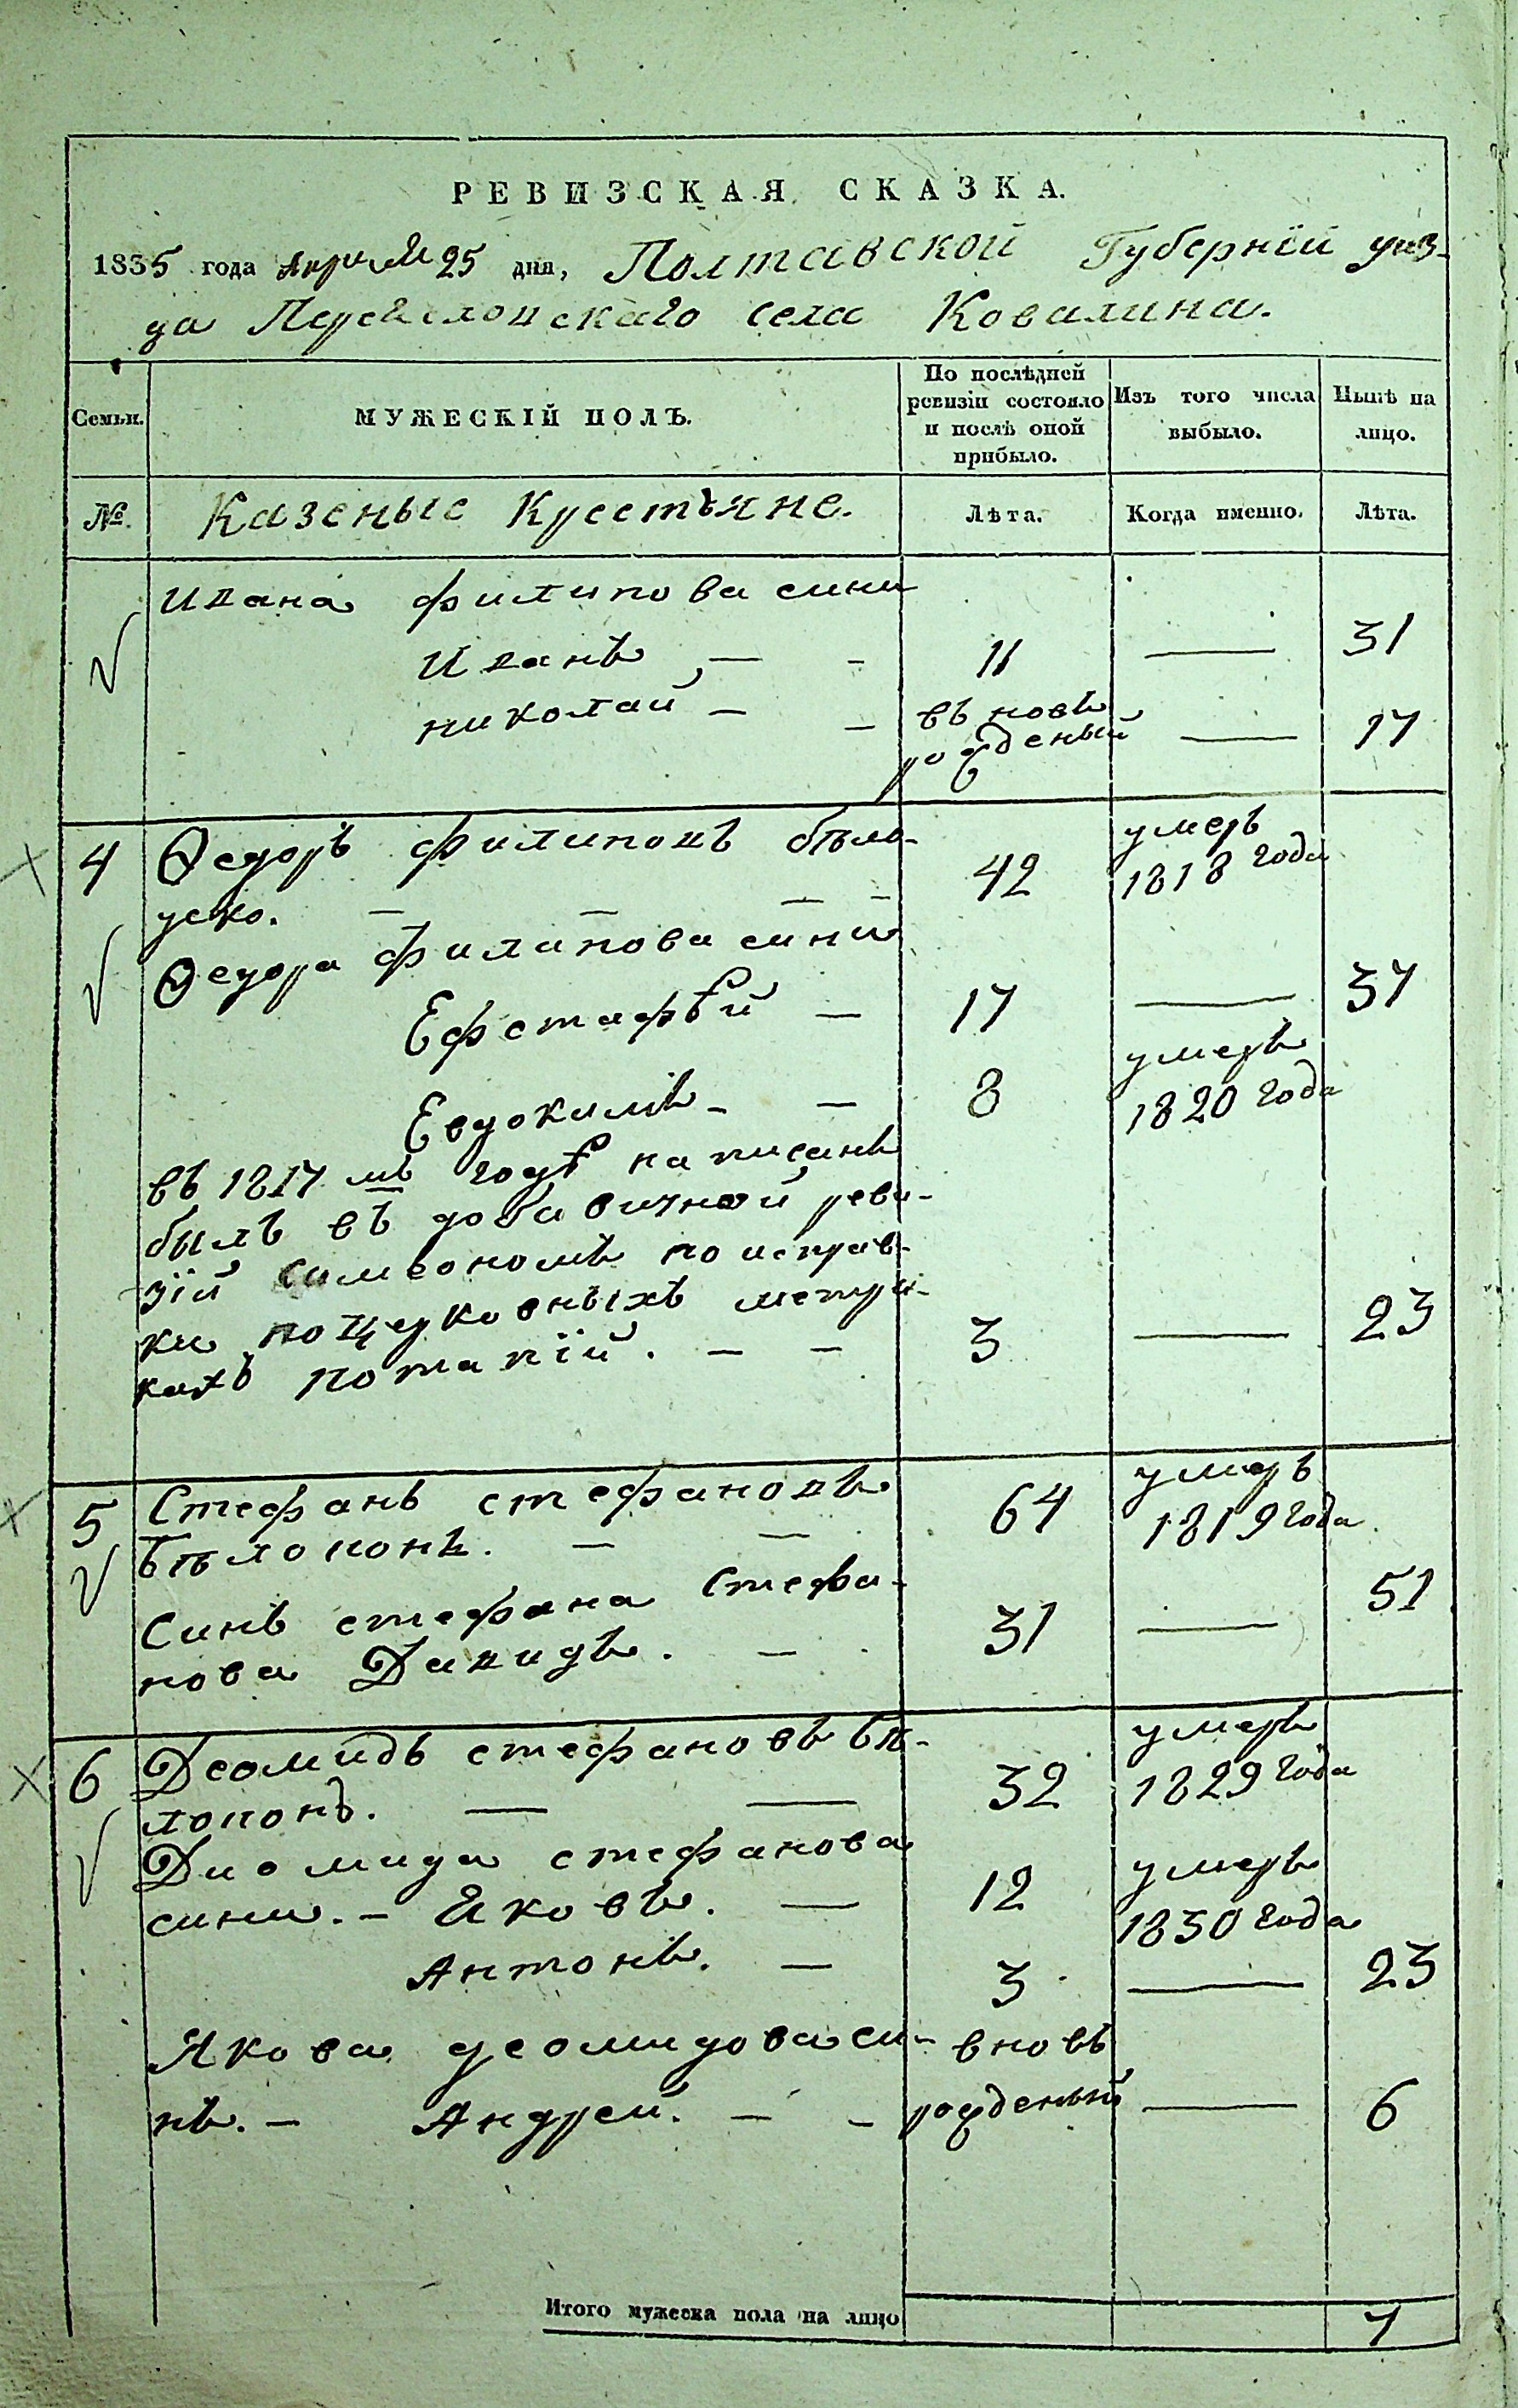 РЕВИЗСКАЯ СКАЗКА.
1835 года Апреля 25 дня, Полтавской Губернїи уѣз-
да Переяславскаго села Ковалина.
Семьи. МУЖЕСКІЙ ПОЛЪ. По послѣдней ревизіи состояло и послѣ оной прибыло. Изъ того числа выбыло. Нынѣ на лицо.
№. Казеные Крестъяне. Лѣта. Когда именно. Лѣта.
Ивана филипова сини
Иванъ — - 11 — 31
николай - - въ новъ рожденый — 17
4 Ѳедоръ филиповъ бѣло-
уско. — — — 42 умеръ 1818 года
Ѳедора филипова сини
Ефстафѣй — 17 — 37
Евдокимъ - — 8 умеръ 1820 года
въ 1817 мъ годѣ написанъ
былъ въ добавичной реви-
зїй симеономъ по исправ-
ки по церковныхъ метри-
кахъ потапїй. - - 3 — 23
5 Стефанъ стефановъ
Бѣлоконъ. — — 64 умеръ 1819 года
Синъ стефана Стефа-
нова Давидъ. — 31 — 51
6 Деомидъ стефановъ бѣ-
локонъ. — — 32 умеръ 1829 года
Диомида стефанова
сини. - Яковъ. — 12 умеръ 1830 года
Антонъ. — 3 — 23
Якова деомидова си- вновъ
нъ. - Андрей. - - рожденый — 6
Итого мужеска пола на лицо 7